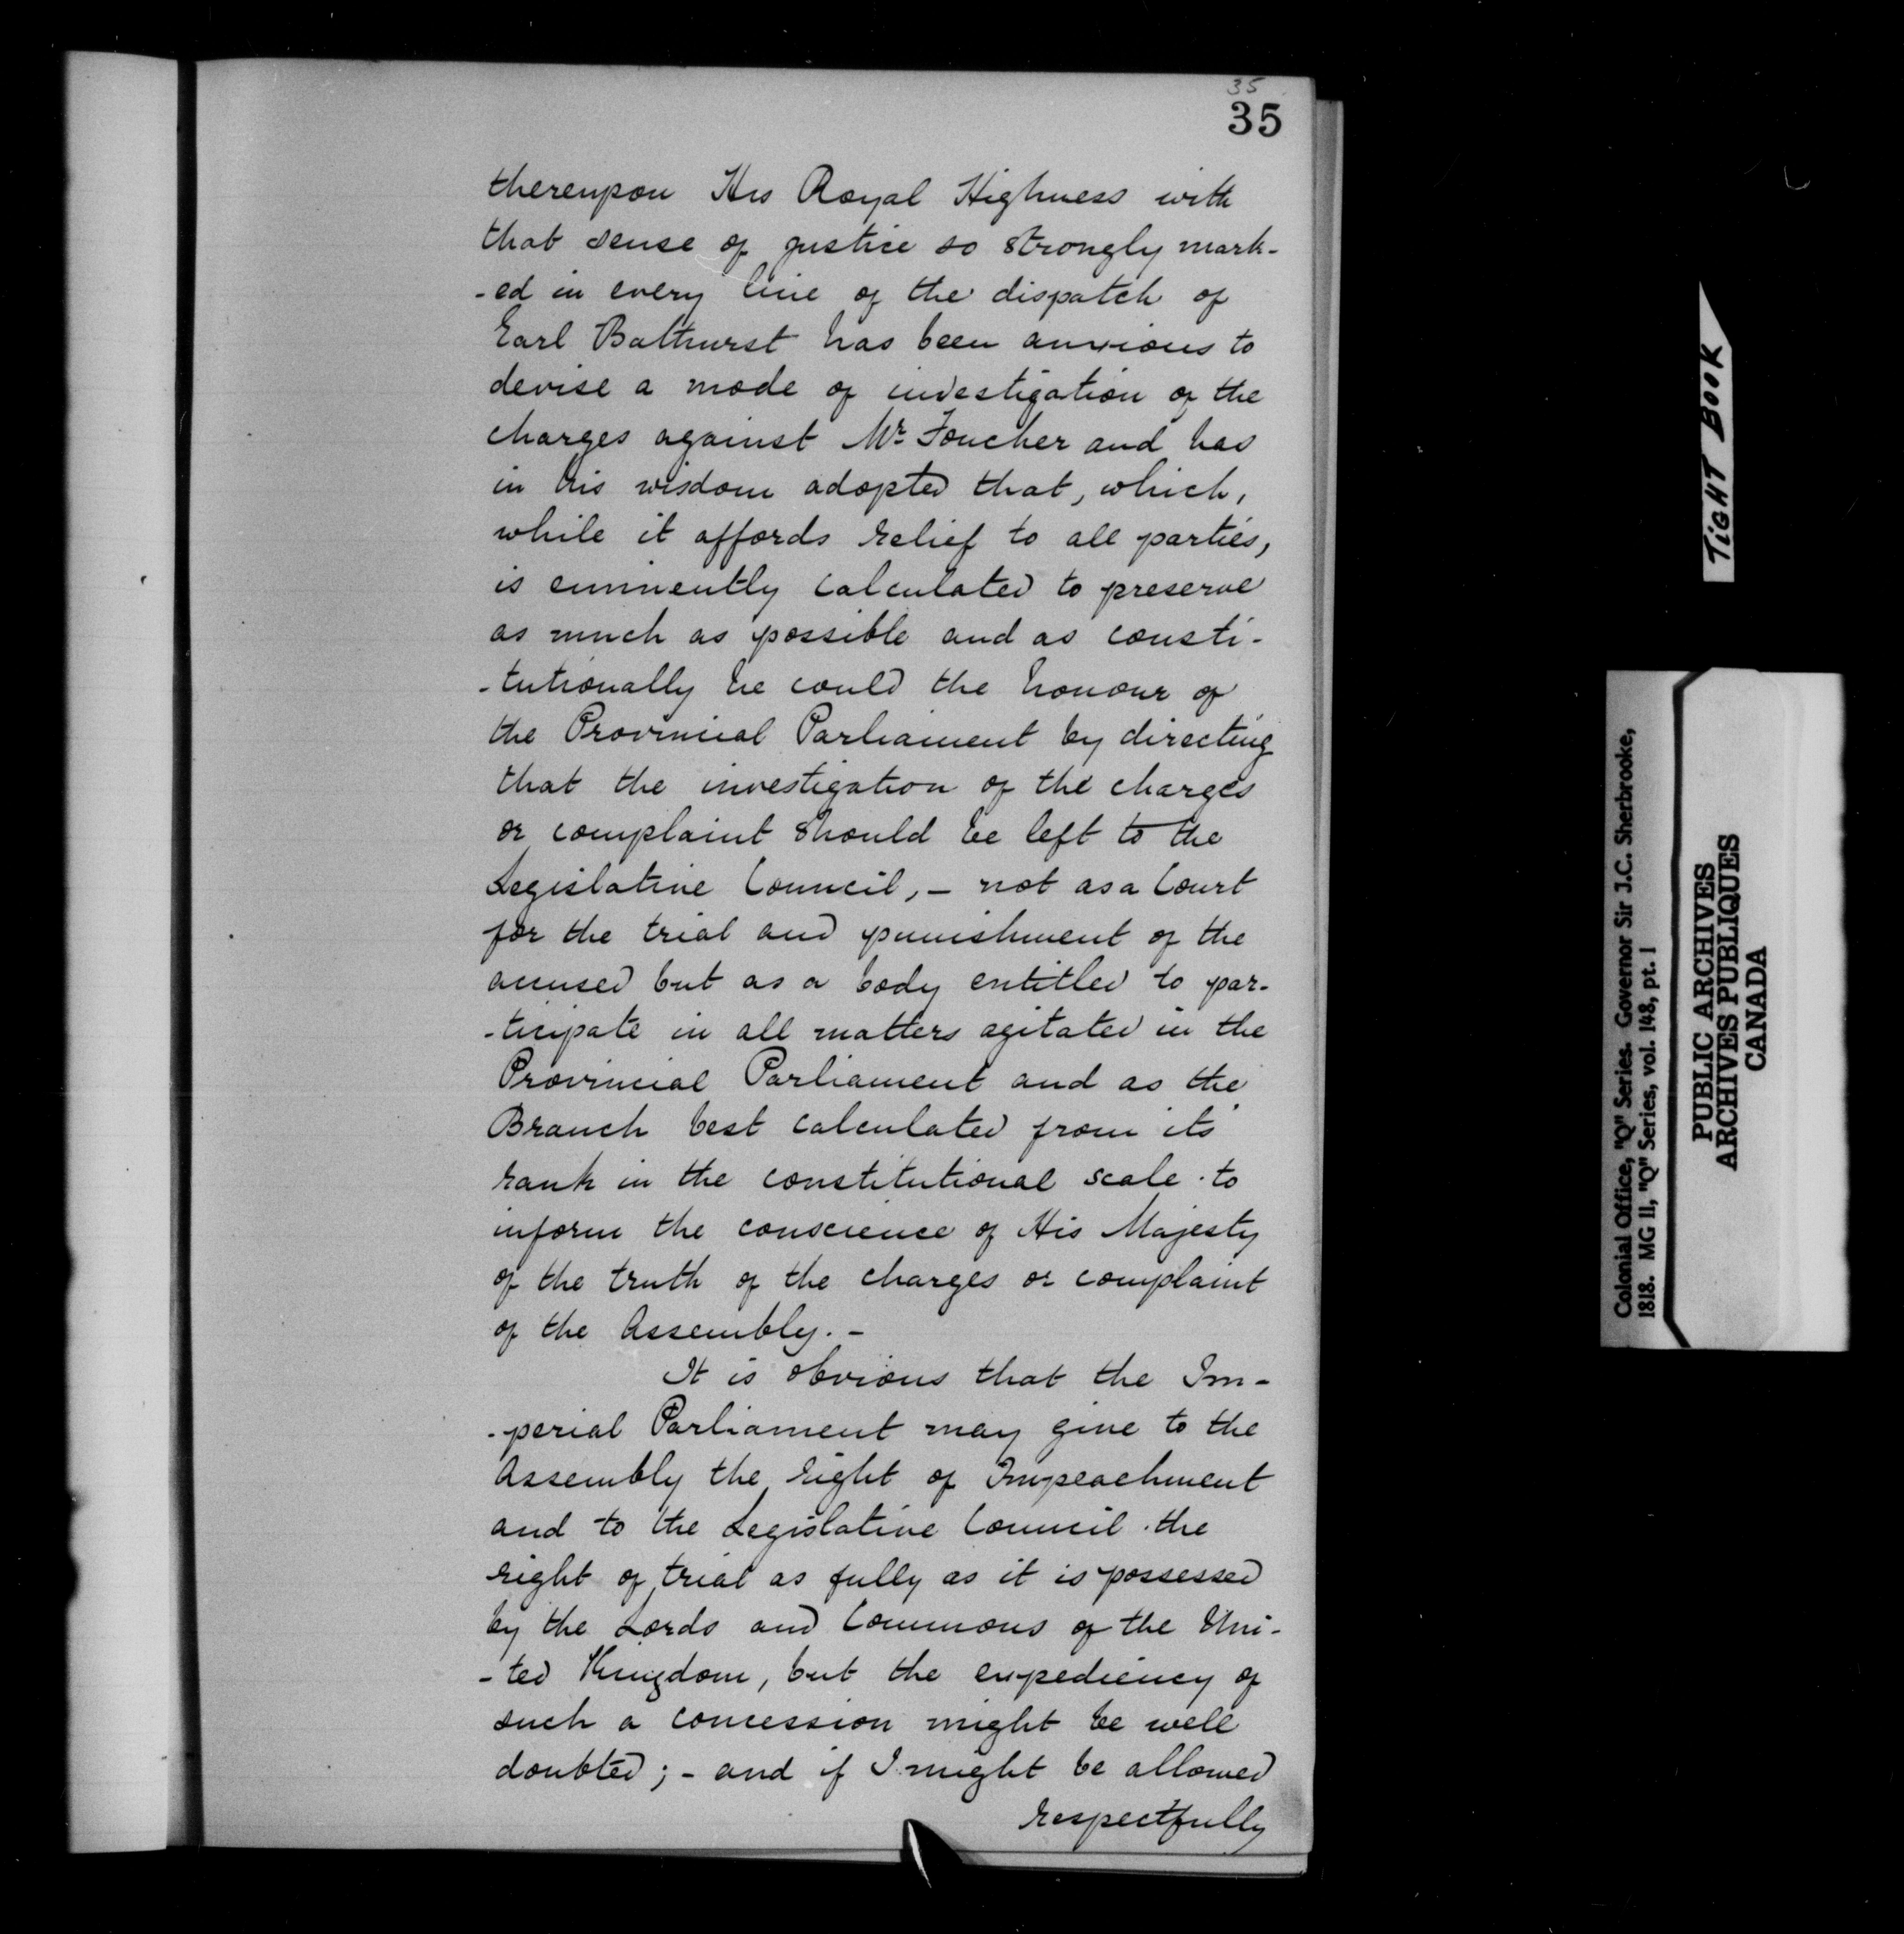 35
35
thereupon His Royal Highness with
that sense of justice so strongly mark-
-ed in every line of the dispatch of
Earl Bathurst has been anxious to
devise a mode of investigation of the
charges against Mr. Foucher and has
in his wisdom adopted that, which,
while it affords relief to all parties,
is eminently calculated to preserve
as much as possible and as consti-
-tutionally he could the honour of
the Provincial Parliament by directing
that the investigation of the charges
or complaint should be left to the
Legislative Council, - not as a Court
for the trial and punishment of the
accused but as a body entitled to par-
-ticipate in all matters agitated in the
Provincial Parliament and as the
Branch best calculated from its
rank in the constitutional scale to
inform the conscience of His Majesty
of the truth of the charges or complaint
of the Assembly. -
It is obvious that the Im-
-perial Parliament may give to the
Assembly the right of Impeachment
and to the Legislative Council the
right of trial as fully as it is possessed
by the Lords and Commons of the Uni-
-ted Kingdom, but the expediency of
such a concession might be well
doubted; - and if I might be allowed
respectfully
TIGHT BOOK
Colonial Office, "Q" Series. Governor Sir J.C. Sherbrooke,
1818. MG 11, "Q" Series, vol. 148, pt. 1
PUBLIC ARCHIVES
ARCHIVES PUBLIQUES
CANADA